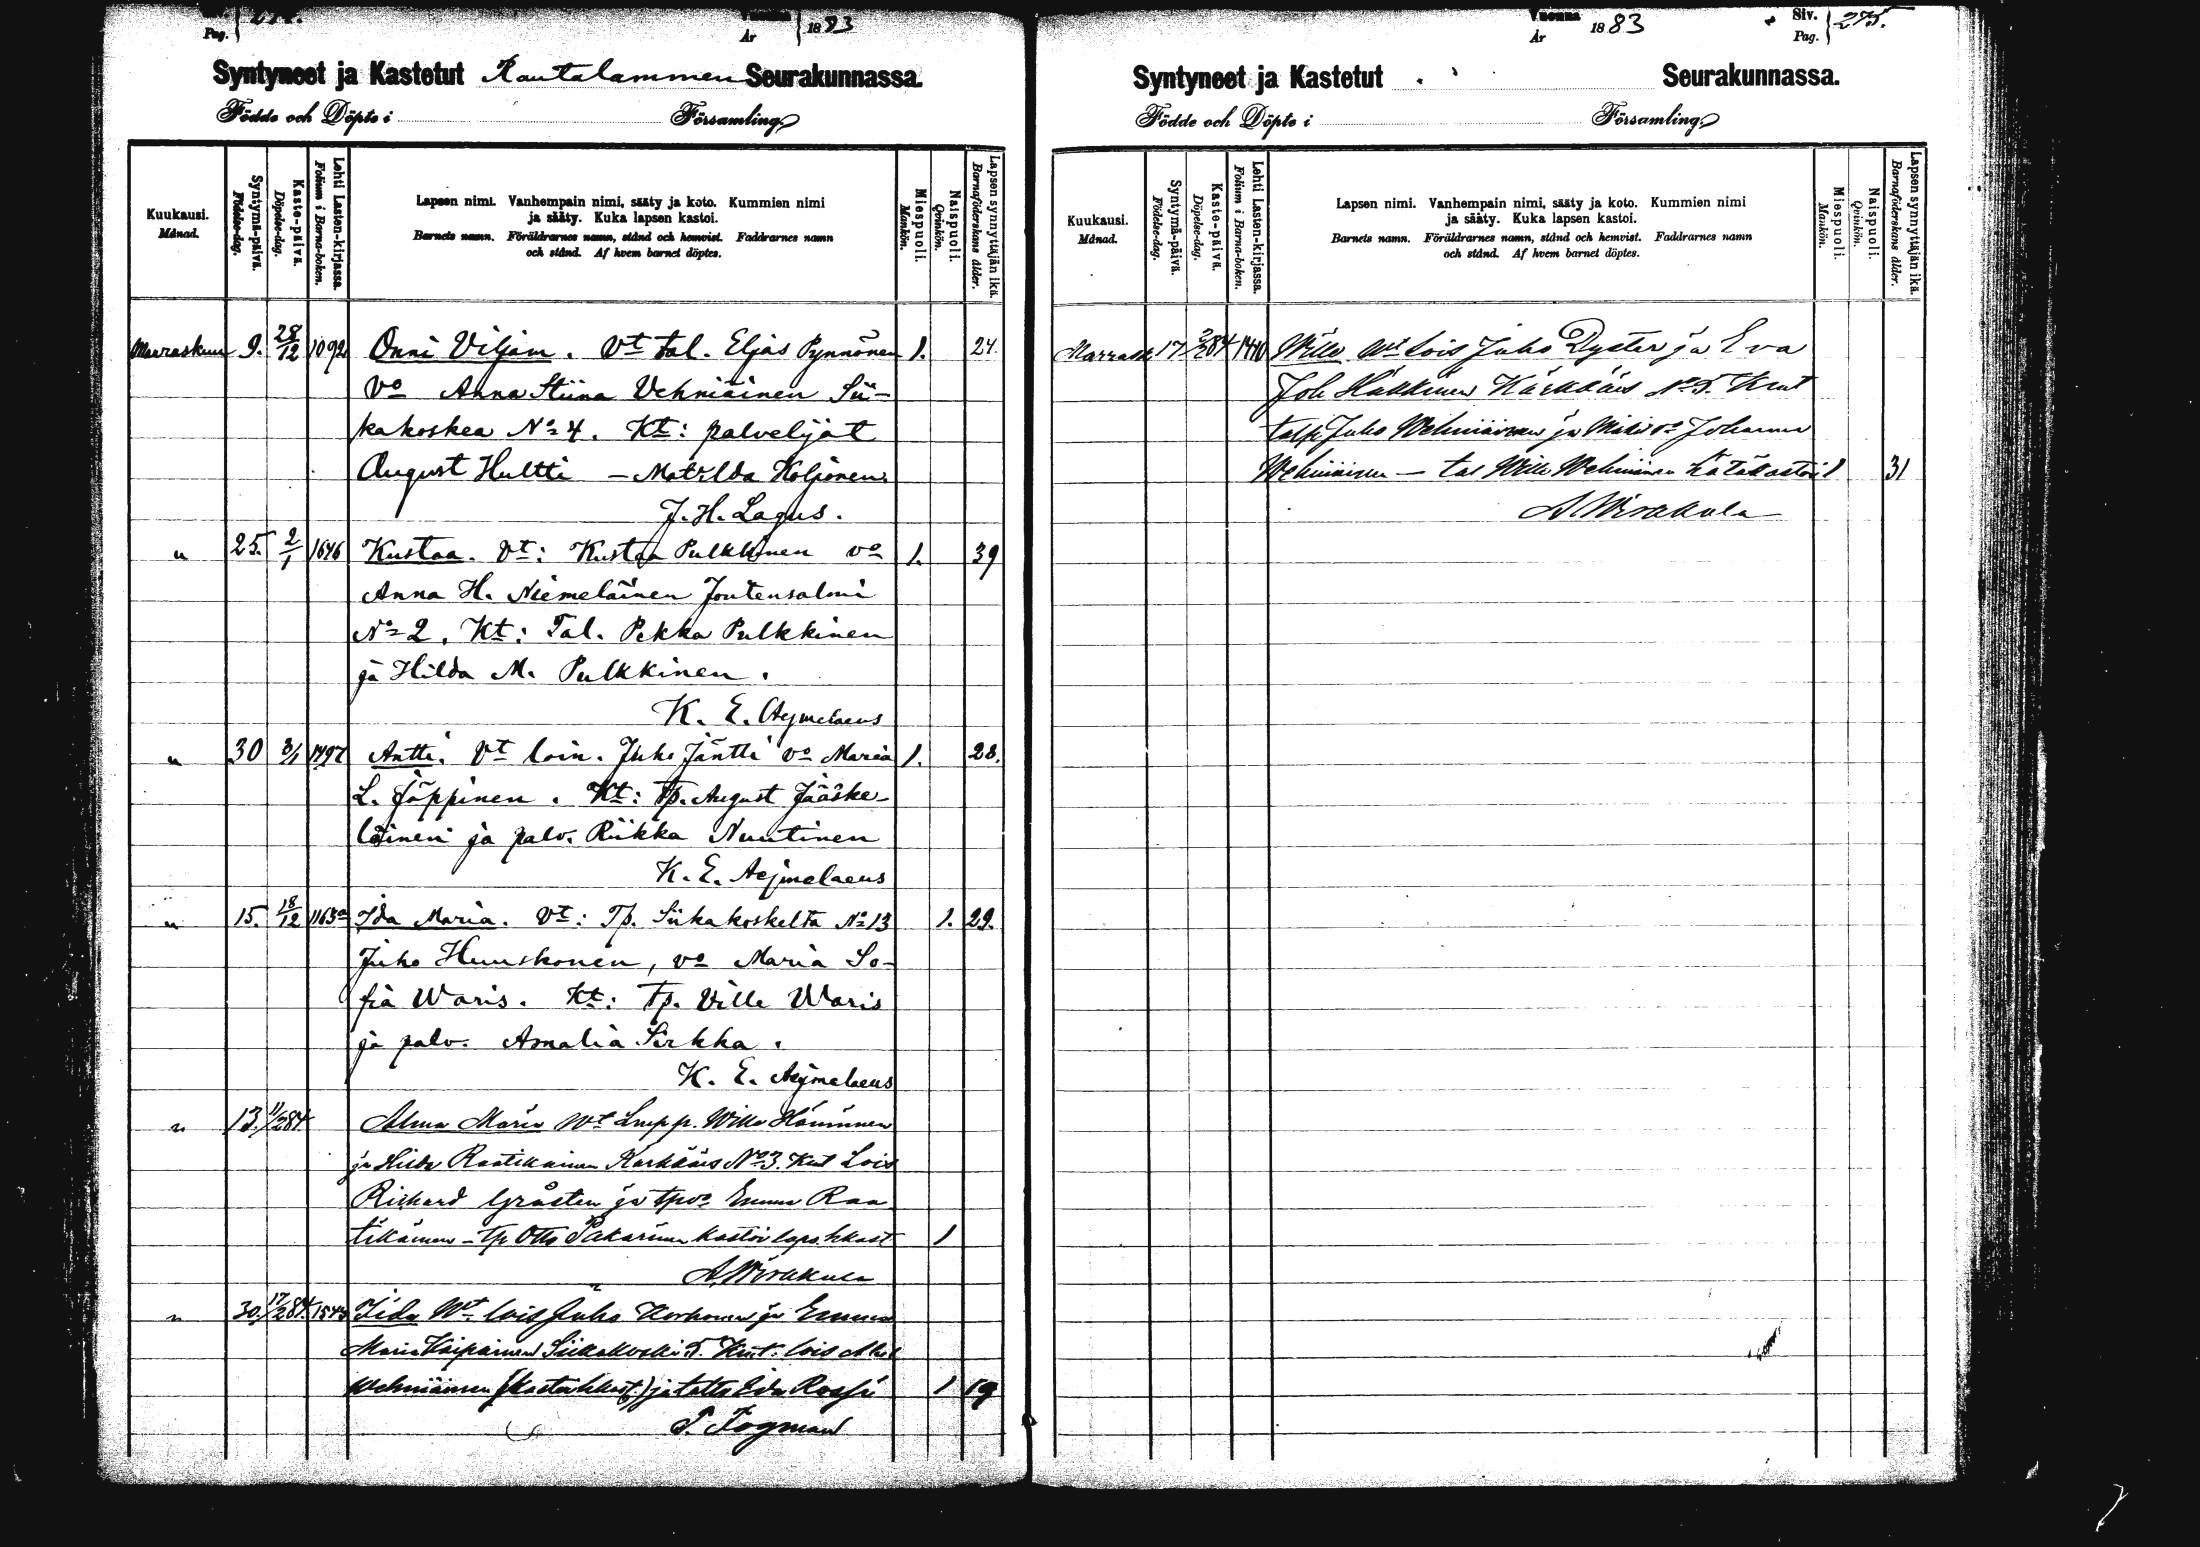 Pag.
Vuonna
År
1883
Syntyneet ja Kastetut Rautalammen Seurakunnassa.
Födde och Döpte i Församling
Kuukausi.
Månad.
Syntymä-päivä.
Födelse-dag.
Kaste-päivä.
Döpelse-dag.
Lehti Lasten-kirjassa.
Folium i Barna-boken.
Lapsen nimi. Vanhempain nimi, sääty ja koto. Kummien nimi
ja sääty. Kuka lapsen kastoi.
Barnets namn. Föräldrarnes namn, stånd och hemvist. Faddrarnes namn
och stånd. Af hvem barnet döptes.
Miespuoli.
Mankön.
Naispuoli.
Qvinkön.
Lapsen synnyttäjän ikä.
Barnaföderskans ålder.
Marraskuu 9. 28/12 1092 Onni Viljam. Vt tal. Eljas Pynnönen 1. 24.
vo Anna Stiina Vehniäinen Sii-
kakoskea No 4. Kt: palvelijat
August Hultti — Matilda Koljonen
J. H. Lagus.
" 25. 2/1 1646 Kustaa. Vt: Kustaa Pulkkinen vo 1. 39
Anna H. Niemeläinen Joutensalmi
No 2. Kt: Tal. Pekka Pulkkinen
ja Hilda M. Pulkkinen.
K. E. Aejmelaeus
" 30 3/1 Antti. Vt loin. Juho Jäntti vo Maria 1. 28.
L. Jäppinen. Kt: Tp. August Jääske-
läinen ja palv. Riikka Nuutinen
K. E. Aejmelaeus
" 15. 18/12 1163a Ida Maria. Vt: Tp. Siikakoskelta No 13 1. 29.
Juho Huuskonen, vo Maria So-
fia Waris. Kt: Tp. Ville Waris
ja palv. Amalia Sirkka.
K. E. Aejmelaeus
" 13. 11/2 84 Alma Maria Wt Ville Hänninen
ja Hilda Raatikainen Karkääs No 3. Kut Lois
Richard Gråsten ja tpvo Emma Raa
tikainen - tp Otto Pakarinen kastoi laps. hkast 1
A. Wirakula
" 30. 17/2 84. 1543 Iida Wt lois Juho Korhonen ja Emma
Maria Kaipainen Siikakoski 5. Kut. lois
Wehniäinen ja Eva 1 19
P. Fogman
Vuonna
År
1883
Siv.
Pag.
275.
Syntyneet ja Kastetut Seurakunnassa.
Födde och Döpte i Församling
Kuukausi.
Månad.
Syntymä-päivä.
Födelse-dag.
Kaste-päivä.
Döpelse-dag.
Lehti Lasten-kirjassa.
Folium i Barna-boken.
Lapsen nimi. Vanhempain nimi, sääty ja koto. Kummien nimi
ja sääty. Kuka lapsen kastoi.
Barnets namn. Föräldrarnes namn, stånd och hemvist. Faddrarnes namn
och stånd. Af hvem barnet döptes.
Miespuoli.
Mankön.
Naispuoli.
Qvinkön.
Lapsen synnyttäjän ikä.
Barnaföderskans ålder.
Marrask 17 3/2 84 1410 Wille Wt lois Juho Dyster ja Eva
Joh Häkkinen Kärkkäis No 5. Kut
Juho Wehniäinen ja Johanna
Wehniäinen — tal Wille Wehniäinen hätäkastoi 1 31
A Wirakula